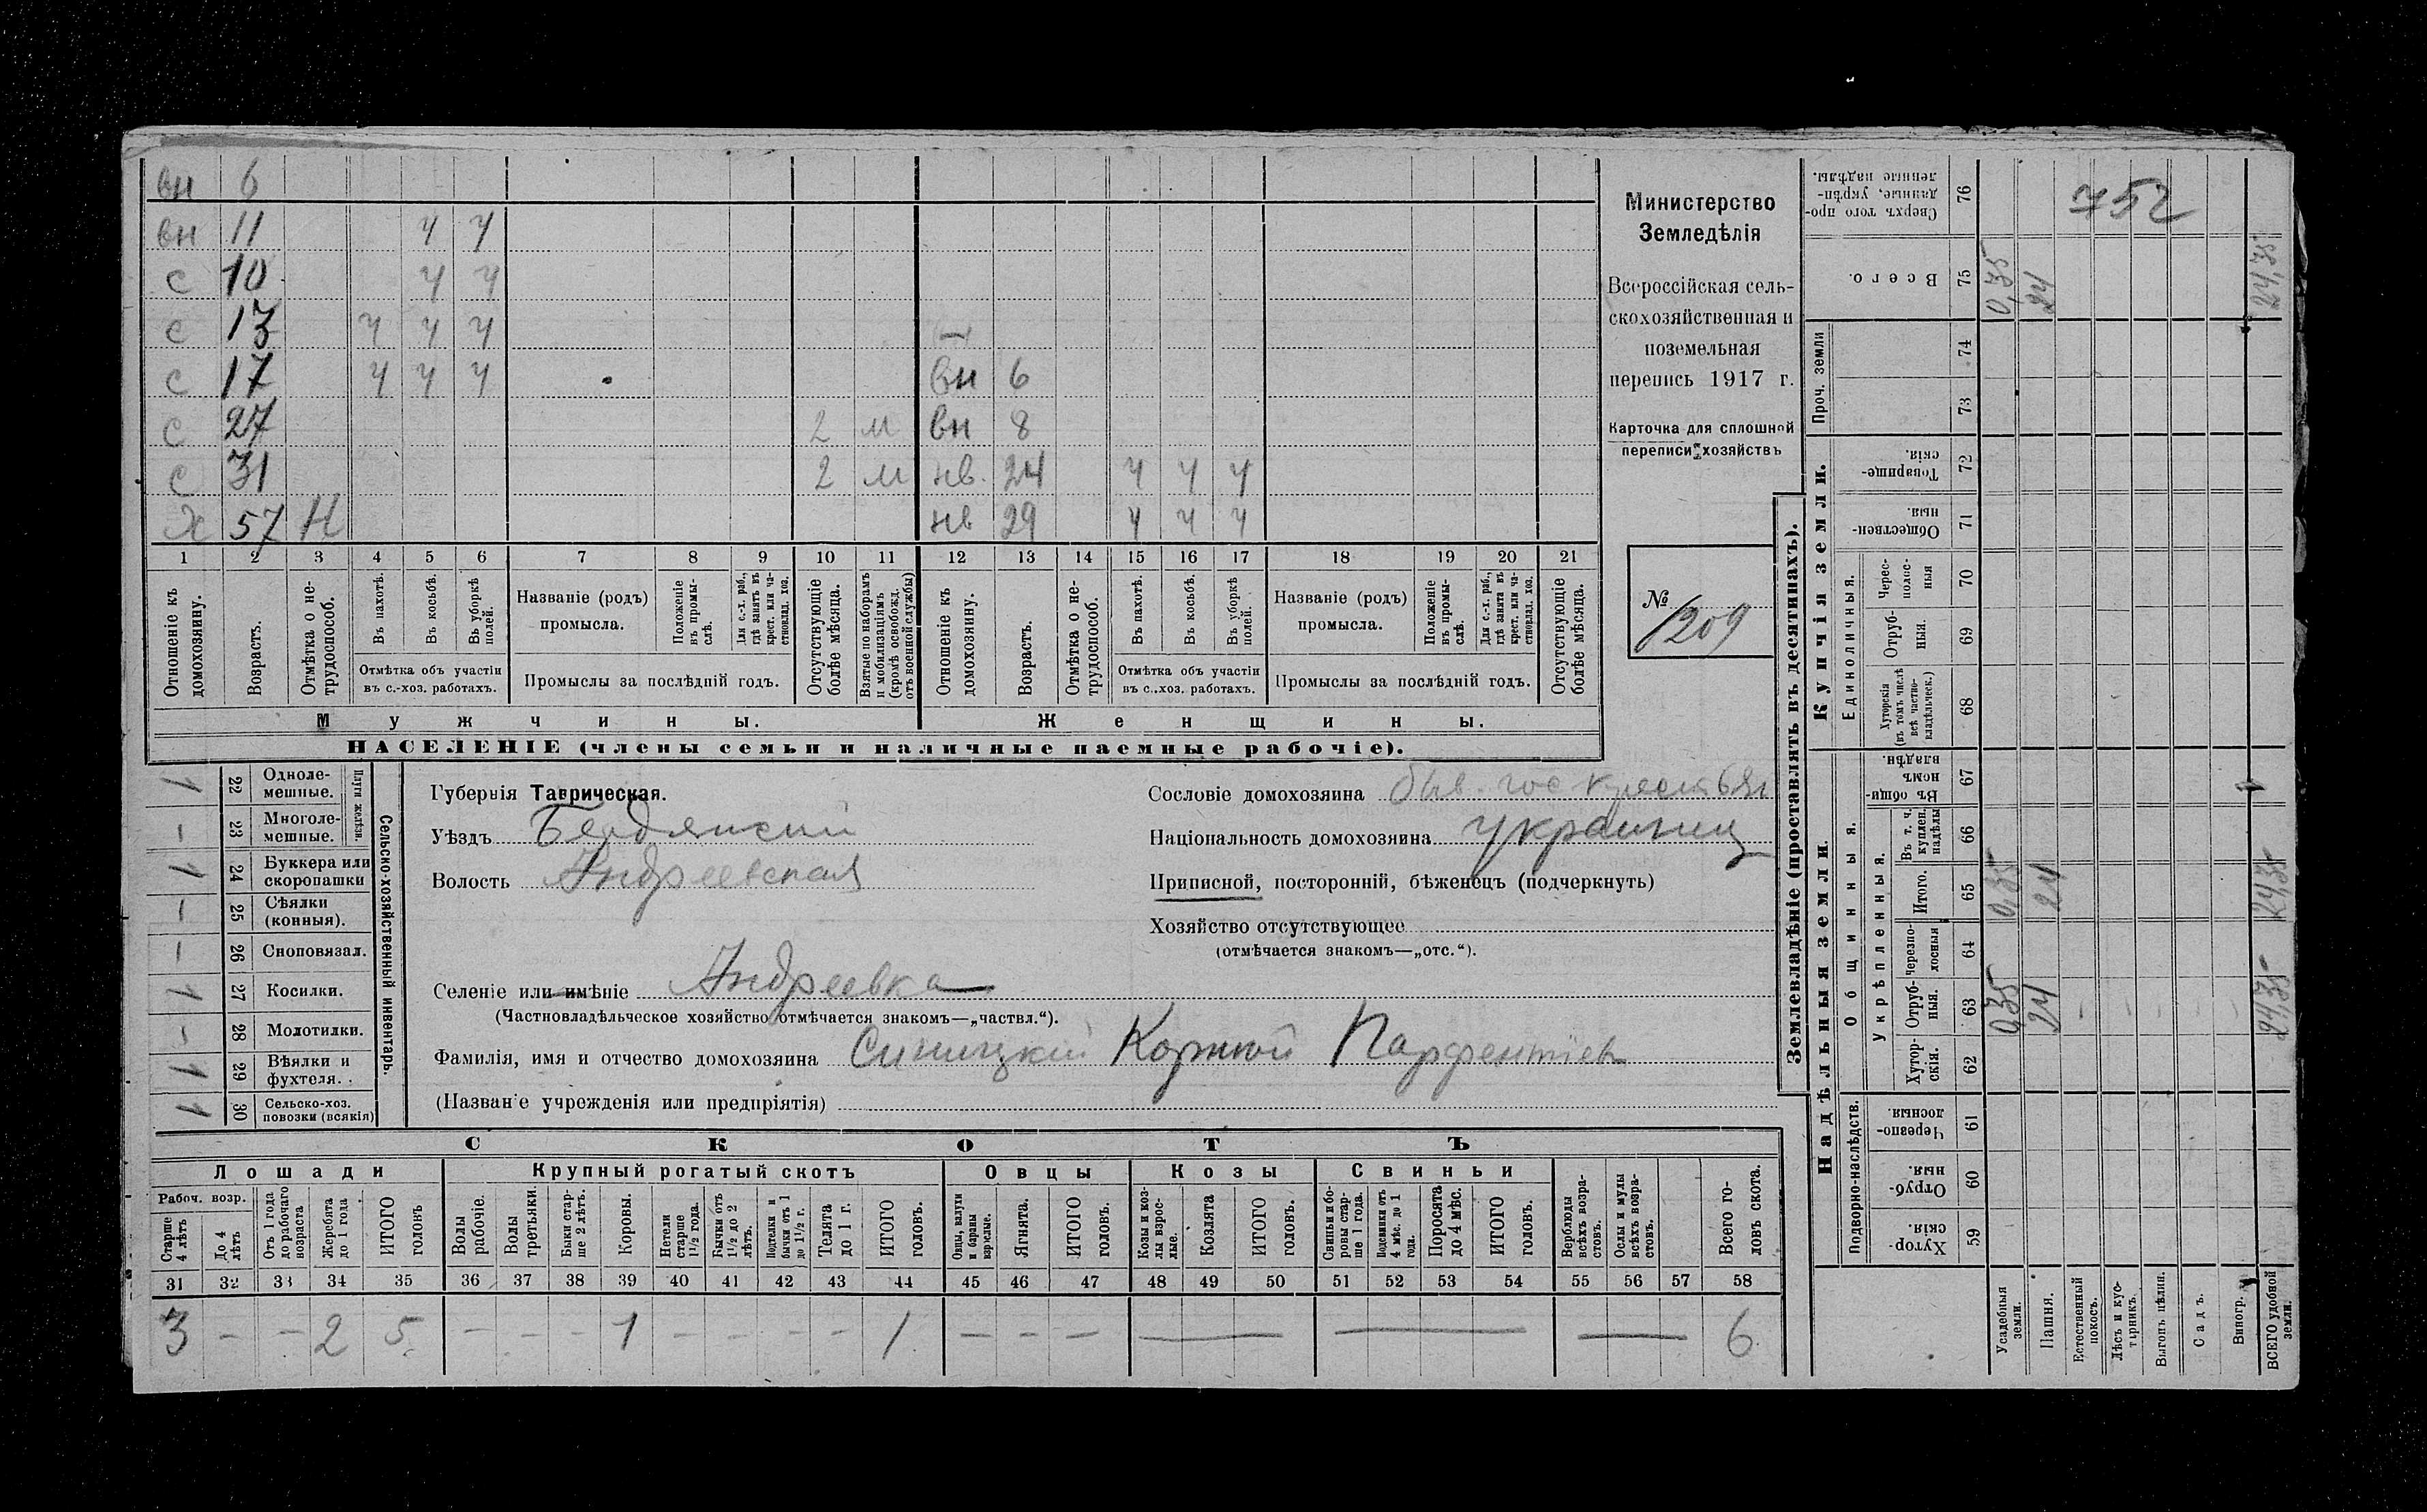 вн 6
вн 11 ч ч
с 10 ч ч
с 13 ч ч ч —
с 17 ч ч ч вн 6
с 27 2 м вн 8
с 31 2 м нв. 24 ч ч ч
х 57 Н нв 29 ч ч ч
1 2 3 4 5 6 7 8 9 10 11 12 13 14 15 16 17 18 19 20 21
Отношеніе къ домохозяину.
Возрастъ.
Отмѣтка о не-трудоспособ.
Въ пахотѣ.
Въ косьбѣ.
Въ уборкѣ полей.
Отмѣтка объ участіи въ с.-хоз. работахъ.
Названіе (родъ) промысла.
Положеніе въ промы-слѣ.
Для с.-х. раб., гдѣ занятъ въ крест. или ча-стновлад. хоз.
Промыслы за послѣдній годъ.
Отсутствующіе болѣе мѣсяца.
Взятые по наборамъ и мобилизаціямъ (кромѣ освобожд. отъ военной службы)
Отношеніе къ домохозяину.
Возрастъ.
Отмѣтка о не-трудоспособ.
Въ пахотѣ.
Въ косьбѣ.
Въ уборкѣ полей.
Отмѣтка объ участіи въ с.-хоз. работахъ.
Названіе (родъ) промысла.
Положеніе въ промы-слѣ.
Для с.-х. раб., гдѣ занята въ крест. или ча-стновлад. хоз.
Промыслы за послѣдній годъ.
Отсутствующіе болѣе мѣсяца.
Мужчины. Женщины.
НАСЕЛЕНІЕ (члены семьи и наличные наемные рабочіе).
Министерство
Земледѣлія
Всероссійская сель-
скохозяйственная и
поземельная
перепись 1917 г.
Карточка для сплошной
переписи хозяйствъ
№ 1209
Сельско-хозяйственный инвентарь.
Плуги желѣзн.
1 22 Одноле-мешные.
— 23 Многоле-мешные.
1 24 Буккера или скоропашки
— 25 Сѣялки (конныя).
— 26 Сноповязал.
1 27 Косилки.
— 28 Молотилки.
1 29 Вѣялки и фухтеля.
1 30 Сельско-хоз. повозки (всякія)
Губернія Таврическая.
Уѣздъ Бердянский
Волость Андреевская
Селеніе или имѣніе Андреевка
(Частновладѣльческое хозяйство отмѣчается знакомъ—„частвл.“).
Фамилія, имя и отчество домохозяина Синицкій Корній Парфентіев
(Названіе учрежденія или предпріятія)
Сословіе домохозяина быв. гос крестьян
Національность домохозяина украинец
Приписной, посторонній, бѣженецъ (подчеркнуть)
Хозяйство отсутствующее
(отмѣчается знакомъ—„отс.“).
СКОТЪ
Лошади Крупный рогатый скотъ Овцы Козы Свиньи
Рабоч. возр.
Старше 4 лѣтъ
До 4 лѣтъ
Отъ 1 года до рабочаго возраста
Жеребята до 1 года
ИТОГО головъ
Волы рабочіе.
Волы третьяки.
Быки стар-ше 2 лѣтъ.
Коровы.
Нетели старше 1½ года.
Бычки отъ 1½ до 2 лѣтъ.
Подтелки и бычки отъ 1 до 1½ г.
Телята до 1 г.
ИТОГО головъ.
Овцы, валухи и бараны взрослые.
Ягнята.
ИТОГО
Козы и коз-лы взрос-лые.
Козлята
ИТОГО головъ.
Свиньи бо-ровы стар-ше 1 года.
Подсвинки отъ 4 мѣс. до 1 года.
Поросята до 4 мѣс.
ИТОГО головъ.
Верблюды всѣхъ возра-стовъ.
Ослы и мулы всѣхъ возра-стовъ.
Всего го-ловъ скота.
31 32 33 34 35 36 37 38 39 40 41 42 43 44 45 46 47 48 49 50 51 52 53 54 55 56 57 58
3 — — 2 5 — — — 1 — — — — 1 — — — — — — 6
Землевладѣніе (проставлять въ десятинахъ).
Надѣльныя земли. Купчія земли. Проч. земли
Подворно-наслѣдств. Общинныя. Укрѣпленныя. Единоличныя.
752
76 Сверхъ того про-данные, укрѣп-ленные надѣлы.
75 Всего. 0,35 24 24,35
74
73
72 Товарище-скія.
71 Обществен-ныя.
70 Черес-полос-ныя
69 Отруб-ныя.
68 Хуторскія (въ томъ числѣ всѣ частно-владѣльческ.)
67 Въ общи-номъ владѣн.
66 Въ т. ч. куплен. надѣлы
65 Итого. 0,35 24 24,35
64 Черезпо-лосныя
63 Отруб-ныя. 0,35 24 — — — — — 24,35
62 Хутор-скія.
61 Черезпо-лосныя
60 Отруб-ныя.
59 Хутор-скія.
Усадебныя земли.
Пашня.
Естественный покосъ.
Лѣсъ и кус-тарникъ.
Выгонъ цѣлин.
Садъ.
Виногр.
ВСЕГО удобной земли.